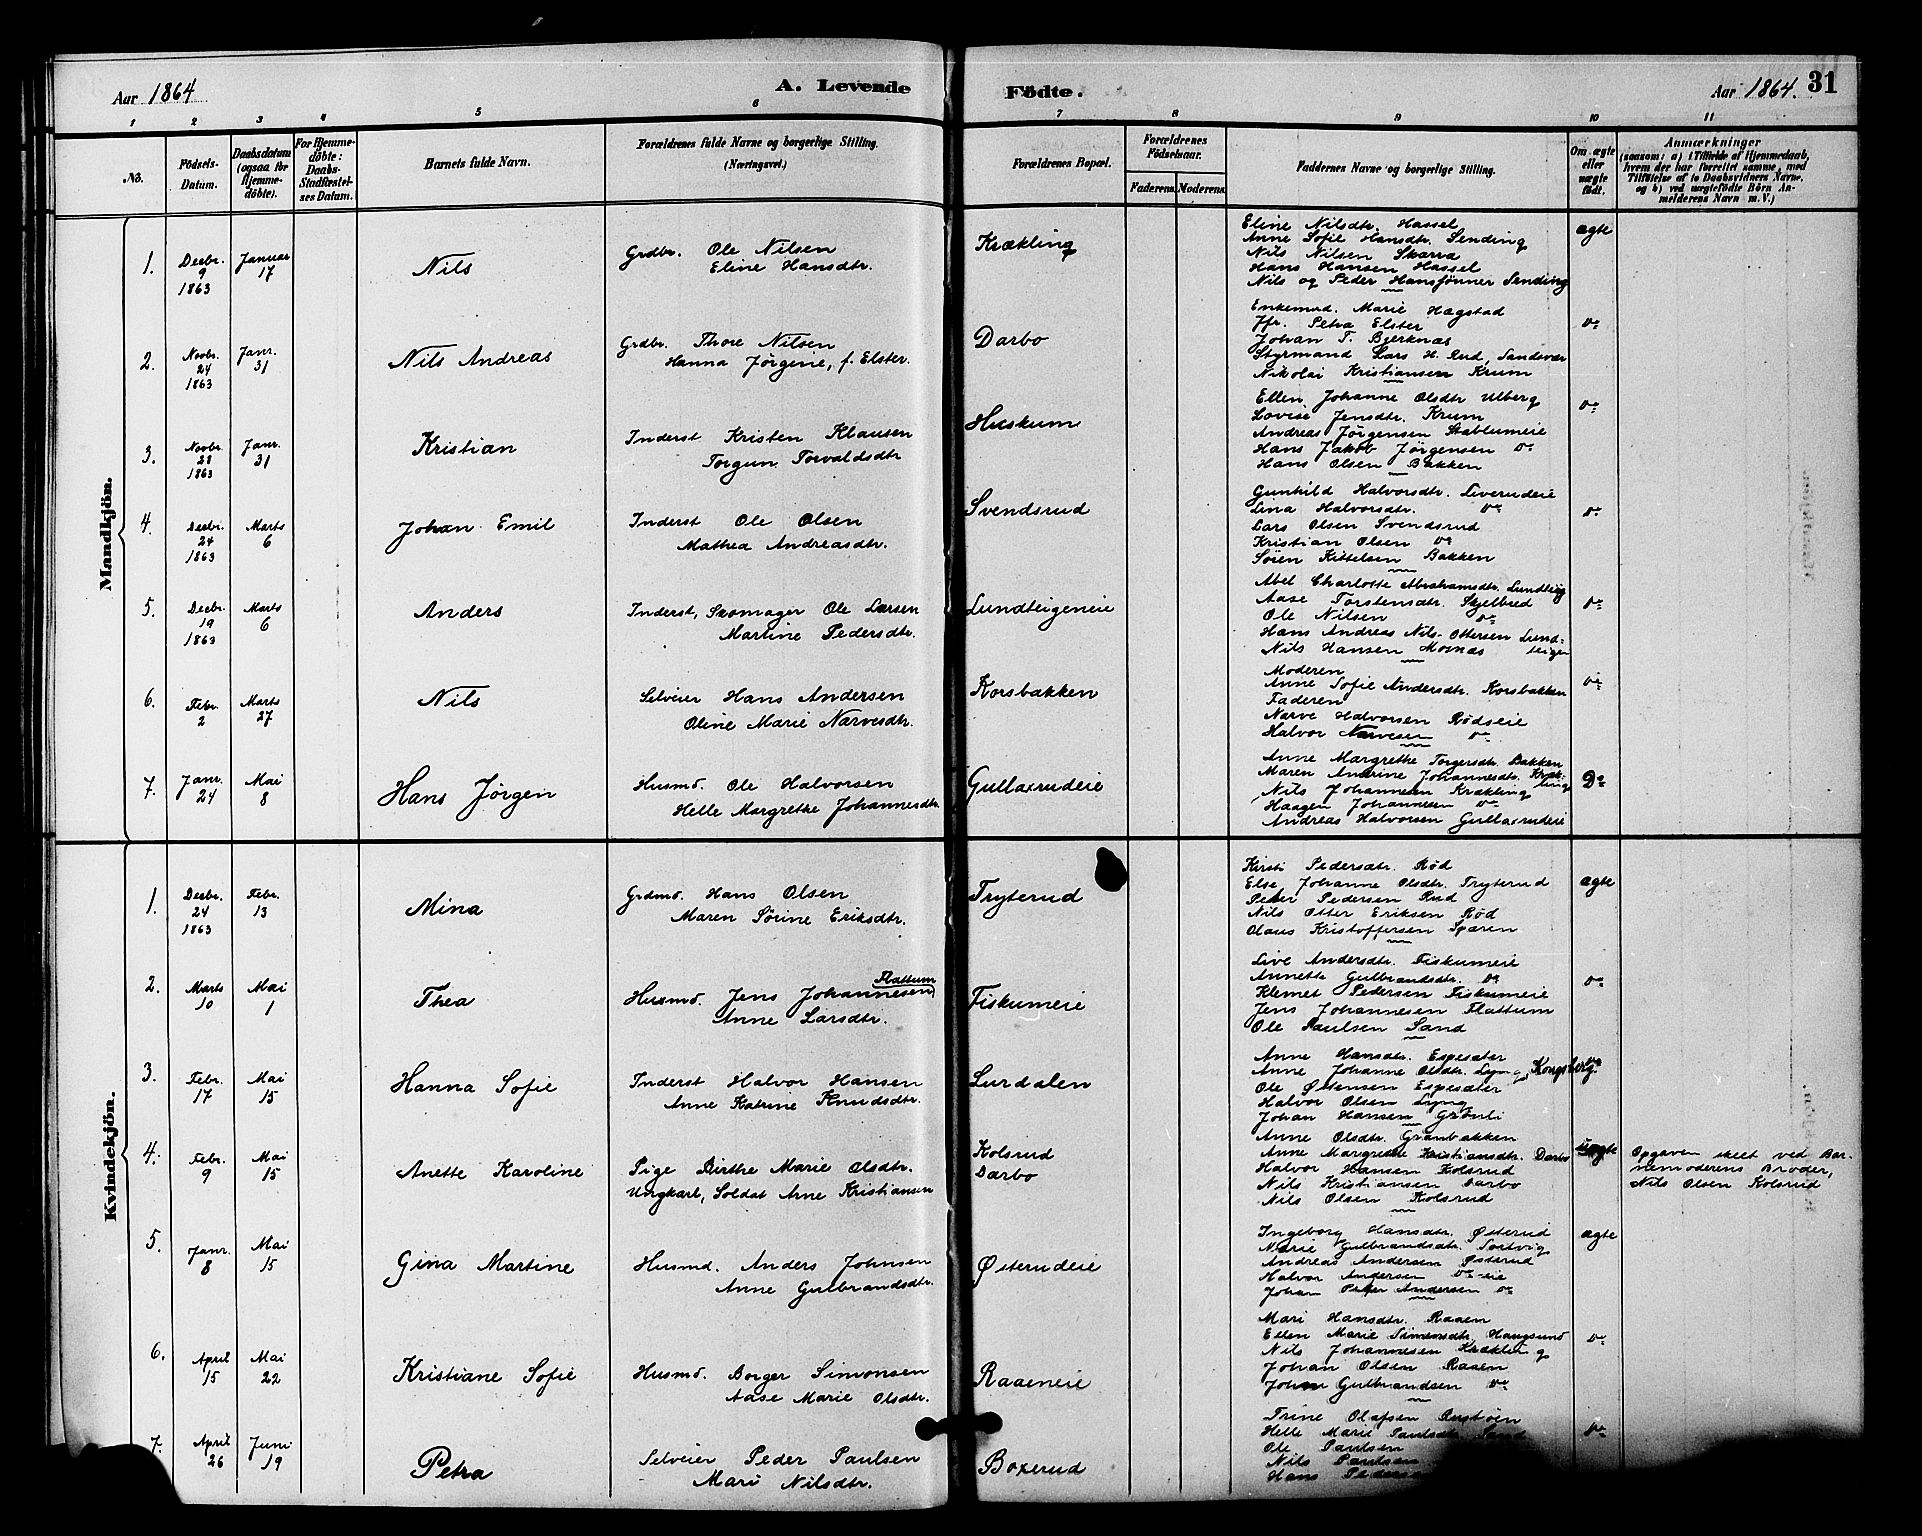 Aar 1864 A. Levende Fødte. Aar 1864. 31
1 2 3 4 5 6 7 8 9 10 11
No. Fødsels-Datum. Daabsdatum (ogsaa for Hjemme-døbte). For Hjemme-døbte: Daabs-Stadfæstel-ses Datum. Barnets fulde Navn. Forældrenes fulde Navne og borgerlige Stilling. (Næringsvei.) Forældrenes Bopæl. Forældrenes Fødselsaar. Faderens. Moderens. Faddernes Navne og borgerlige Stilling. Om ægte eller uægte født. Anmærkninger (saasom: a) i Tilfælde af Hjemmedaab, hvem der har forrettet samme, med Tilføielse af to Daabsvidners Navne, og b) ved uægtefødte Børn An-melderens Navn m. V.)
Mandkjön.
1. Decbr. 9 1863 Januar 17 Nils Grdbr. Ole Nilsen
Eline Hansdtr. Krækling
Eline Nilsdtr. Hassel ægte
Anne Sofie Hansdtr. Sending
Nils Nilsen Skarra
Hans Hansen Hassel
Nils og Peder Hansønner Sending
2. Novbr. 24 1863 Janr. 31 Nils Andreas Grdbr. Thore Nilsen
Hanna Jørgine, f. Elster. Darbo
Enkemad. Marie Hægstad
Jfr. Petra Elster do
Johan T. Bjerknæs
Styrmand Lars H. Rud, Sandsvær
Nikolai Kristiansen Krum
3. Novbr. 28 1863 Janr. 31 Kristian Inderst Kristen Klausen
Torgun Torvaldsdtr Huskum
Ellen Johanne Olsdtr Ulberg do
Lovise Jensdtr. Krum
Andreas Jørgensen Stablumeie
Hans Jakob Jørgensen do
Hans Olsen Bakken
4. Decbr. 24 1863 Marts 6 Johan Emil Inderst Ole Olsen
Mathea Andreasdtr. Svendsrud
Gunhild Halvorsdtr. Liverudeie
Lina Halvorsdtr. do do
Lars Olsen Svendsrud
Kristian Olsen do
Søren Kittelsen Bakken
5. Decbr. 19 1863 Marts 6 Anders Inderst, Skomager Ole Larsen
Martine Pedersdtr. Lundteigeneie
Abel Charlotte Abrahamsdtr. Lundteig
Aase Torstensdtr. Skjelbred do
Ole Nilsen do
Hans Andreas Nils. Ottersen Lund-
Nils Hansen Moenæs teigen
6. Febr. 2 Marts 27 Nils Selveier Hans Andersen
Oline Marie Narvesdtr. Korsbakken
Moderen do
Anne Sofie Andersdtr. Korsbakken
Faderen
Narve Halvorsen Rødseie
Halvor Narvesen do
7. Janr. 24 Mai 8 Hans Jørgen Husmd. Ole Halvorsen
Helle Margrethe Johannesdtr Gullaxrudeie
Anne Margrethe Torgersdtr. Bakken
Maren Andrine Johannesdtr. Kræk- Do
Nils Johannesen Krækling ling
Haagen Johannesen do
Andreas Halvorsen Gullaxrudeie
Kvindekjön.
1. Decbr. 24 1863 Febr. 13 Mina Grdmd. Hans Olsen
Maren Sørine Eriksdtr. Tryterud
Kirsti Pedersdtr. Rød
Else Johanne Olsdtr. Tryterud ægte
Peder Pedersen Rud
Nils Otter Eriksen Rød
Olaus Kristoffersen Spæren
2. Marts 10 Mai 1 Thea Husmd. Jens Johannesen Flattum
Anne Larsdtr. Fiskumeie
Live Andersdtr. Fiskumeie
Annette Gulbrandsdtr. do do
Klemet Pedersen Fiskumeie
Jens Johannesen Flattum
Ole Paulsen Sand
3. Febr. 17 Mai 15 Hanna Sofie Inderst Halvor Hansen
Anne Katrine Knudsdtr. Lurdalen
Anne Hansdtr. Espesæter
Anne Johanne Olsdtr. Lyng, Kongsberg do
Ole Østensen Espesæter
Halvor Olsen Lyng
Johan Hansen Grønli
4. Febr. 9 Mai 15 Anette Karoline Pige Birthe Marie Olsdtr.
Ungkarl, Soldat Arne Kristiansen Kolsrud
Darbo
Anne Olsdtr. Granbakken
Anne Margrethe Kristiansdtr. Darbo uægte
Halvor Hansen Kolsrud
Nils Kristiansen Darbo
Nils Olsen Kolsrud
Opgaven skeet ved Bar-
nemoderens Broder,
Nils Olsen Kolsrud
5. Janr. 8 Mai 15 Gina Martine Husmd. Anders Johnsen
Anne Gulbrandsdtr. Østerudeie
Ingeborg Hansdtr. Østerud ægte
Marie Gulbrandsdtr. Tortvig
Andreas Andersen Østerud
Halvor Andersen do-eie
Johan Peter Andersen do
6. April 15 Mai 22 Kristiane Sofie Husmd. Borger Simonsen
Aase Marie Olsdtr. Raaeneie
Mari Hansdtr. Raaen
Ellen Marie Simensdtr. Haugsund do
Nils Johannesen Krækling
Johan Olsen Raaen
Johan Gulbrandsen do
7. April 26 Juni 19 Petra Selveier Peder Paulsen
Mari Nilsdtr. Boxerud
Trine Olafsen Rustøen
Helle Marie Paulsdtr. Sand do
Ole Paulsen
Nils Paulsen
Hans Pedersen